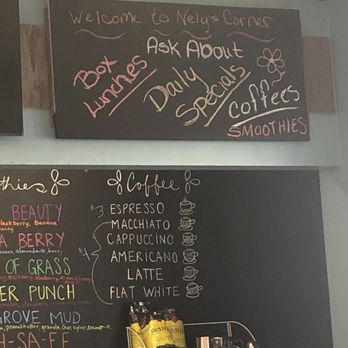 Welcome to Nely's Corner
Ask About
Box Lunches
Daily Specials
Coffees
SMOOTHIES
thies
BEAUTY
lackberry, Banana
A BERRY
OF GLASS
ER PUNCH
GROVE MUD
H-SA-FF
Coffee
ESPRESSO
MACCHIATO
CAPPUCCINO
AMERICANO
LATTE
FLAT WHITE